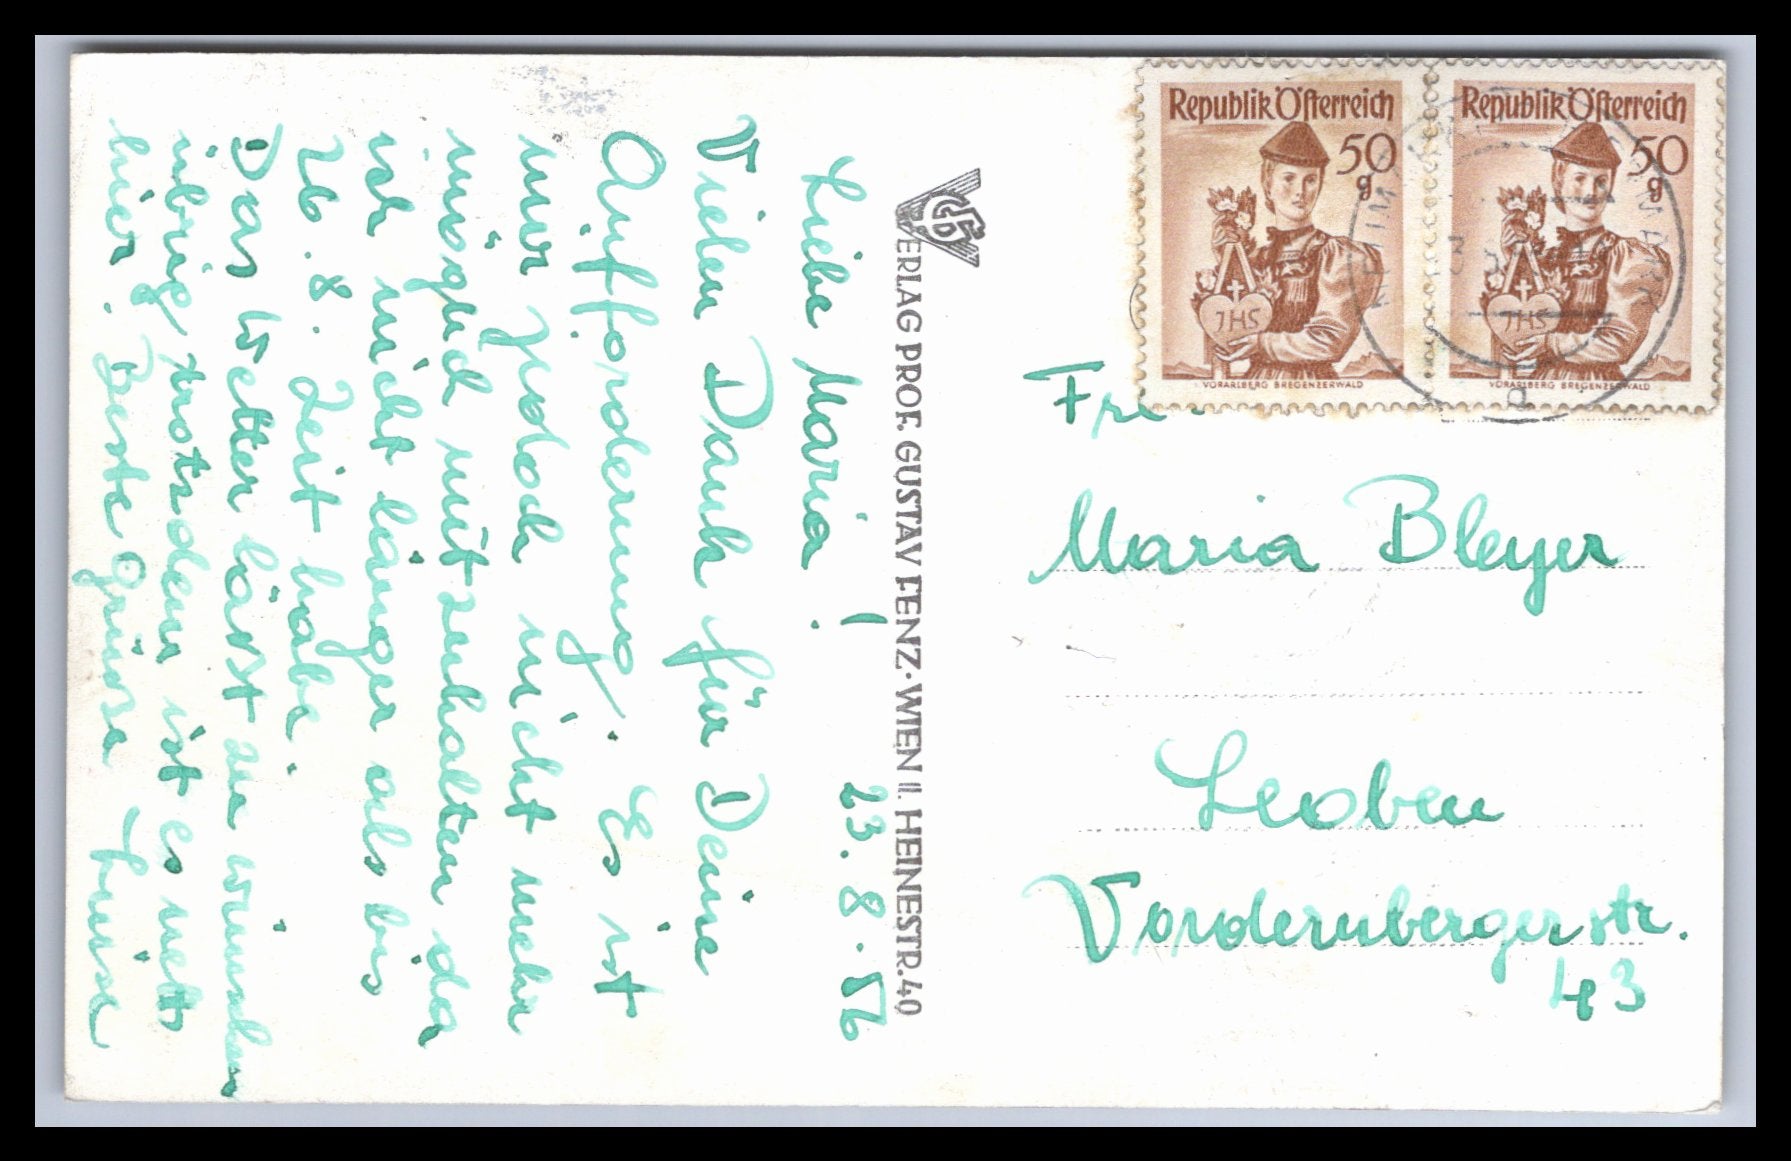 23.8.56
Liebe Maria!
Vielen Dank für Deine
Aufforderung. Es ist
mir jedoch nicht mehr
möglich mitzuhalten da
ich nicht länger als bis
26.8. Zeit habe.
Das Wetter lässt zu wünschen
übrig trotzdem ist es nett
hier. Beste Grüsse Luise
VERLAG PROF. GUSTAV FENZ·WIEN II. HEINESTR. 49
Republik Österreich
50
g
JHS
VORARLBERG BREGENZERWALD
Republik Österreich
50
g
JHS
VORARLBERG BREGENZERWALD
Maria Bleyer
Leoben
Vordernbergerstr.
43